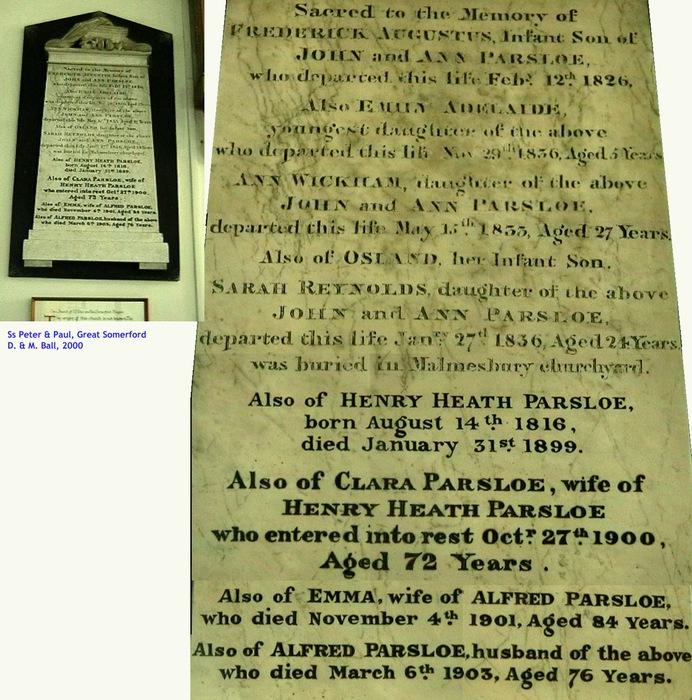 Sacred to the Memory of
FREDERICK AUGUSTUS, Infant Son of
JOHN and ANN PARSLOE,
who departed this life Feby. 12th 1826,
Also EMILY ADELAIDE,
youngest daughter of the above
who departed this life Nov 29th 1836, Aged 5 Years
ANN WICKHAM, daughter of the above
JOHN and ANN PARSLOE,
departed this life May 15th 1835, Aged 27 Years,
Also of OSLAND, her Infant Son,
SARAH REYNOLDS, daughter of the above
JOHN and ANN PARSLOE,
departed this life Jany. 27th 1836, Aged 24 Years,
was buried in Malmesbury churchyard.
Also of HENRY HEATH PARSLOE,
born August 14th 1816,
died January 31st. 1899.
Also of CLARA PARSLOE, wife of
HENRY HEATH PARSLOE
who entered into rest Octr. 27th 1900,
Aged 72 Years .
Also of EMMA, wife of ALFRED PARSLOE,
who died November 4th 1901, Aged 84 Years.
Also of ALFRED PARSLOE, husband of the above
who died March 6th 1903, Aged 76 Years.
Ss Peter & Paul, Great Somerford
D. & M. Ball, 2000